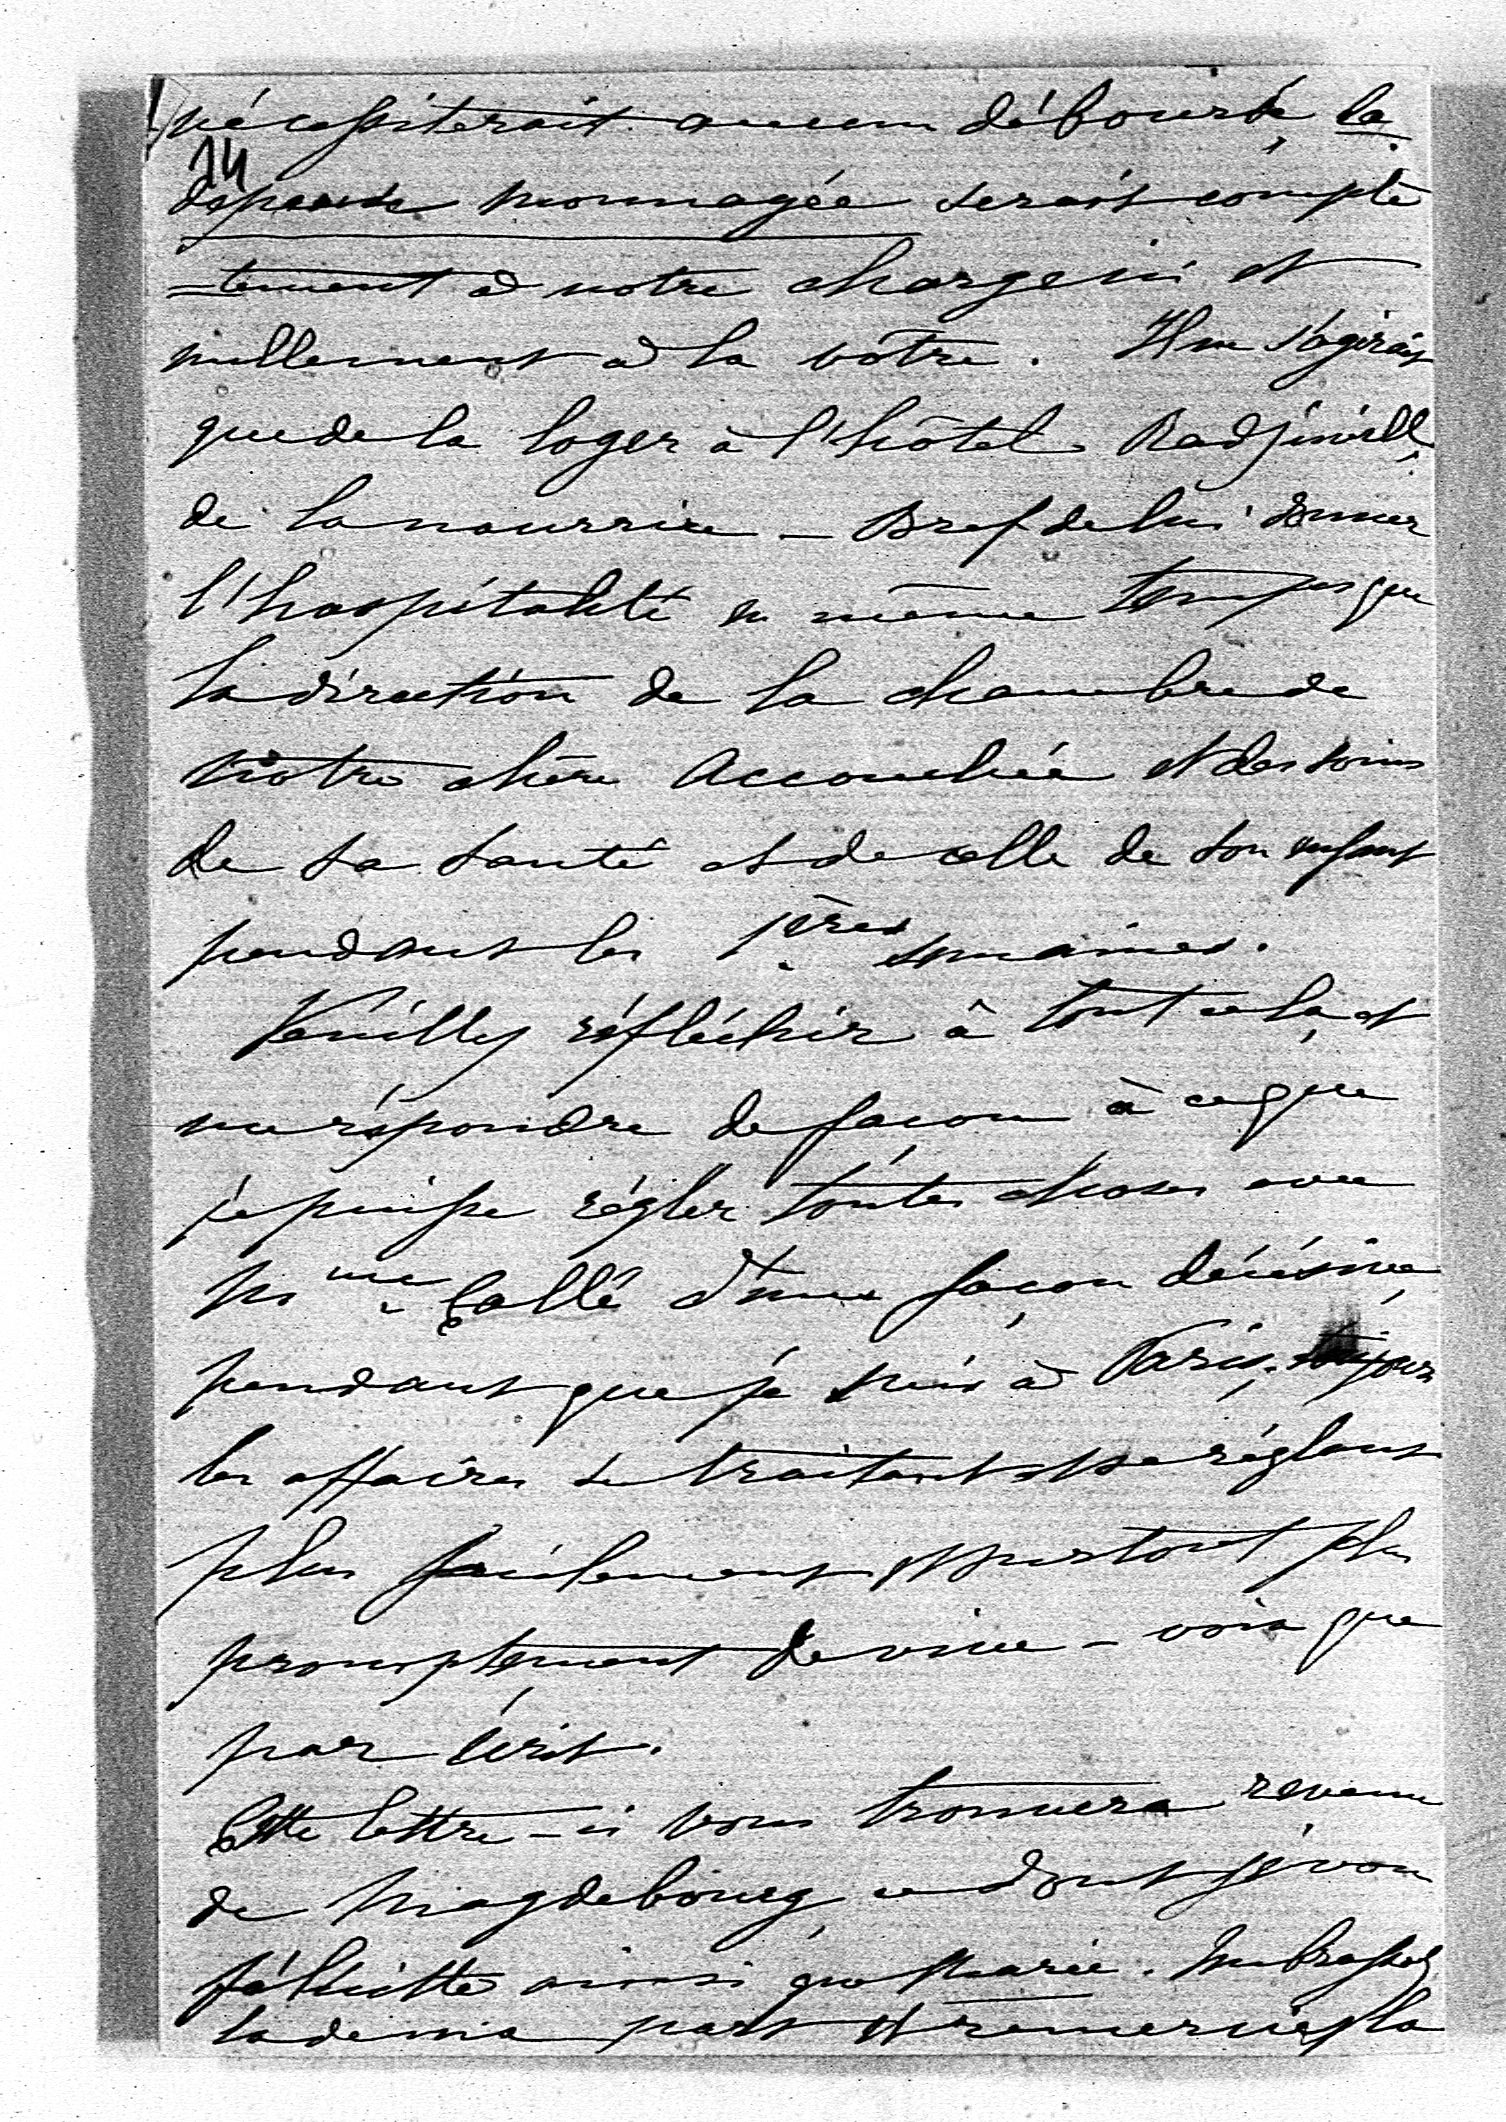 nécessiterait aucun déboursé, la
24
dépense monnagée serait complè
=tement à notre charge ici et
nullement à la vôtre. Il ne s'agirait
que de la loger à l'hôtel Radziwill,
de la nourrir – Bref de lui donner
l'hospitalité en même temps que
la direction de la chambre de
notre chère Accouchée et des soins
de sa santé et de celle de son enfant
pendant les 1ères semaines.
Veuillez réfléchir à tout cela, et
me répondre de façon à ce que
je puisse régler toutes choses avec
Mme Callé d'une façon décisive,
pendant que je suis à Paris, toujours
les affaires se traitant et se réglant
plus facilement et surtout plus
promptement de vive – voix que
par écrit.
Cette lettre – ci vous trouvera revenue
de Magdebourg ce dont je vous
félicitte ainsi que Marie. Embrassez
la de ma part et remerciez la